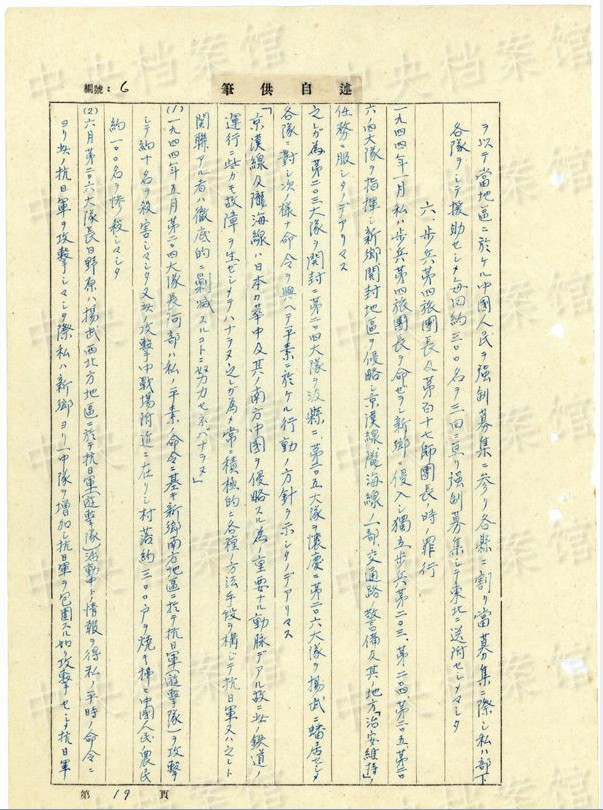 筆供自述
編號：6
ヲ以テ當地區ニ於ケル中國人民ヲ强制募集ニ参リ各縣ニ割リ當募集ニ際シ私ハ部下
各隊ヲシテ援助セシメ毎回約三〇〇名ヲ三回ニ亘リ强制募集シテ東北ニ送附セシメマシタ
六、歩兵第四旅團長及第百十七師團長時ノ罪行
一九四四年一月私ハ歩兵第四旅團長ヲ命ゼラレ新郷ニ侵入シ獨立歩兵第二〇三、第二〇四、第二〇五、第二〇
六ノ四大隊ヲ指揮シ新郷開封地區ヲ侵略シ京漢線、隴海線ノ一部、交通路ノ警備及其ノ地方「治安維持」ノ
任務ニ服シタノデアリマス
之レガ為第二〇三大隊ヲ開封ニ第二〇四大隊ヲ汲縣ニ、第二〇五大隊ヲ懷慶ニ第二〇六大隊ヲ揚武ニ蟠居セシメ
各隊ニ對シ次ノ様ナ命令ヲ與ヘテ平素ニ於ケル行動ノ方針ヲ示シタノデアリマス
「京漢線及隴海線ハ日本ガ華中及其ノ南方中國ヲ侵略スル為ノ重要ナル動脈デアル故ニ此ノ鉄道ノ
運行ニ些カモ故障ヲ生ゼシメテハナラヌ之レガ為メ常ニ積極的ニ各種ノ方法手段ヲ構ジテ抗日軍又ハ之レト
関聯アル者ハ徹底的ニ剿滅スルコトニ努力セネバナラヌ」
(1)一九四四年五月第二〇四大隊長河部ハ私ノ平素ノ命令ニ基キ新郷南方地區ニ於テ抗日軍（遊撃隊）ヲ攻撃
シテ約十名ヲ殺害シマシタ又此ノ攻撃中戦場附近ニ在リシ村落約三〇〇戸ヲ焼キ掃ヒ中國人民農民
約一〇〇名ヲ惨殺シマシタ
(2)六月第二〇六大隊長日野原ハ揚武西北方地區ニ於テ抗日軍（遊撃隊）活動中トノ情報ヲ得私ノ平時ノ命令ニ
ヨリ此ノ抗日軍ヲ攻撃シマシタ際私ハ新郷ヨリ一中隊ヲ増加シ抗日軍ヲ包圍スル如ク攻撃セシメ抗日軍
第19頁
中央档案馆